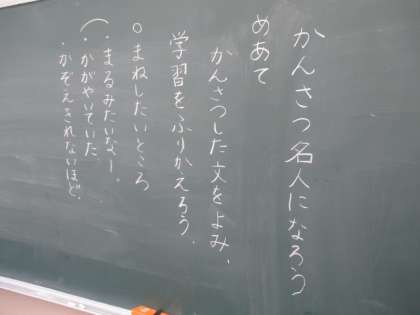 かんさつ名人になろう
めあて
かんさつした文をよみ、
学習をふりかえろう。
○まねしたいところ
・まるみたいなー。
・かがやいていた
・かぞえきれないほど。